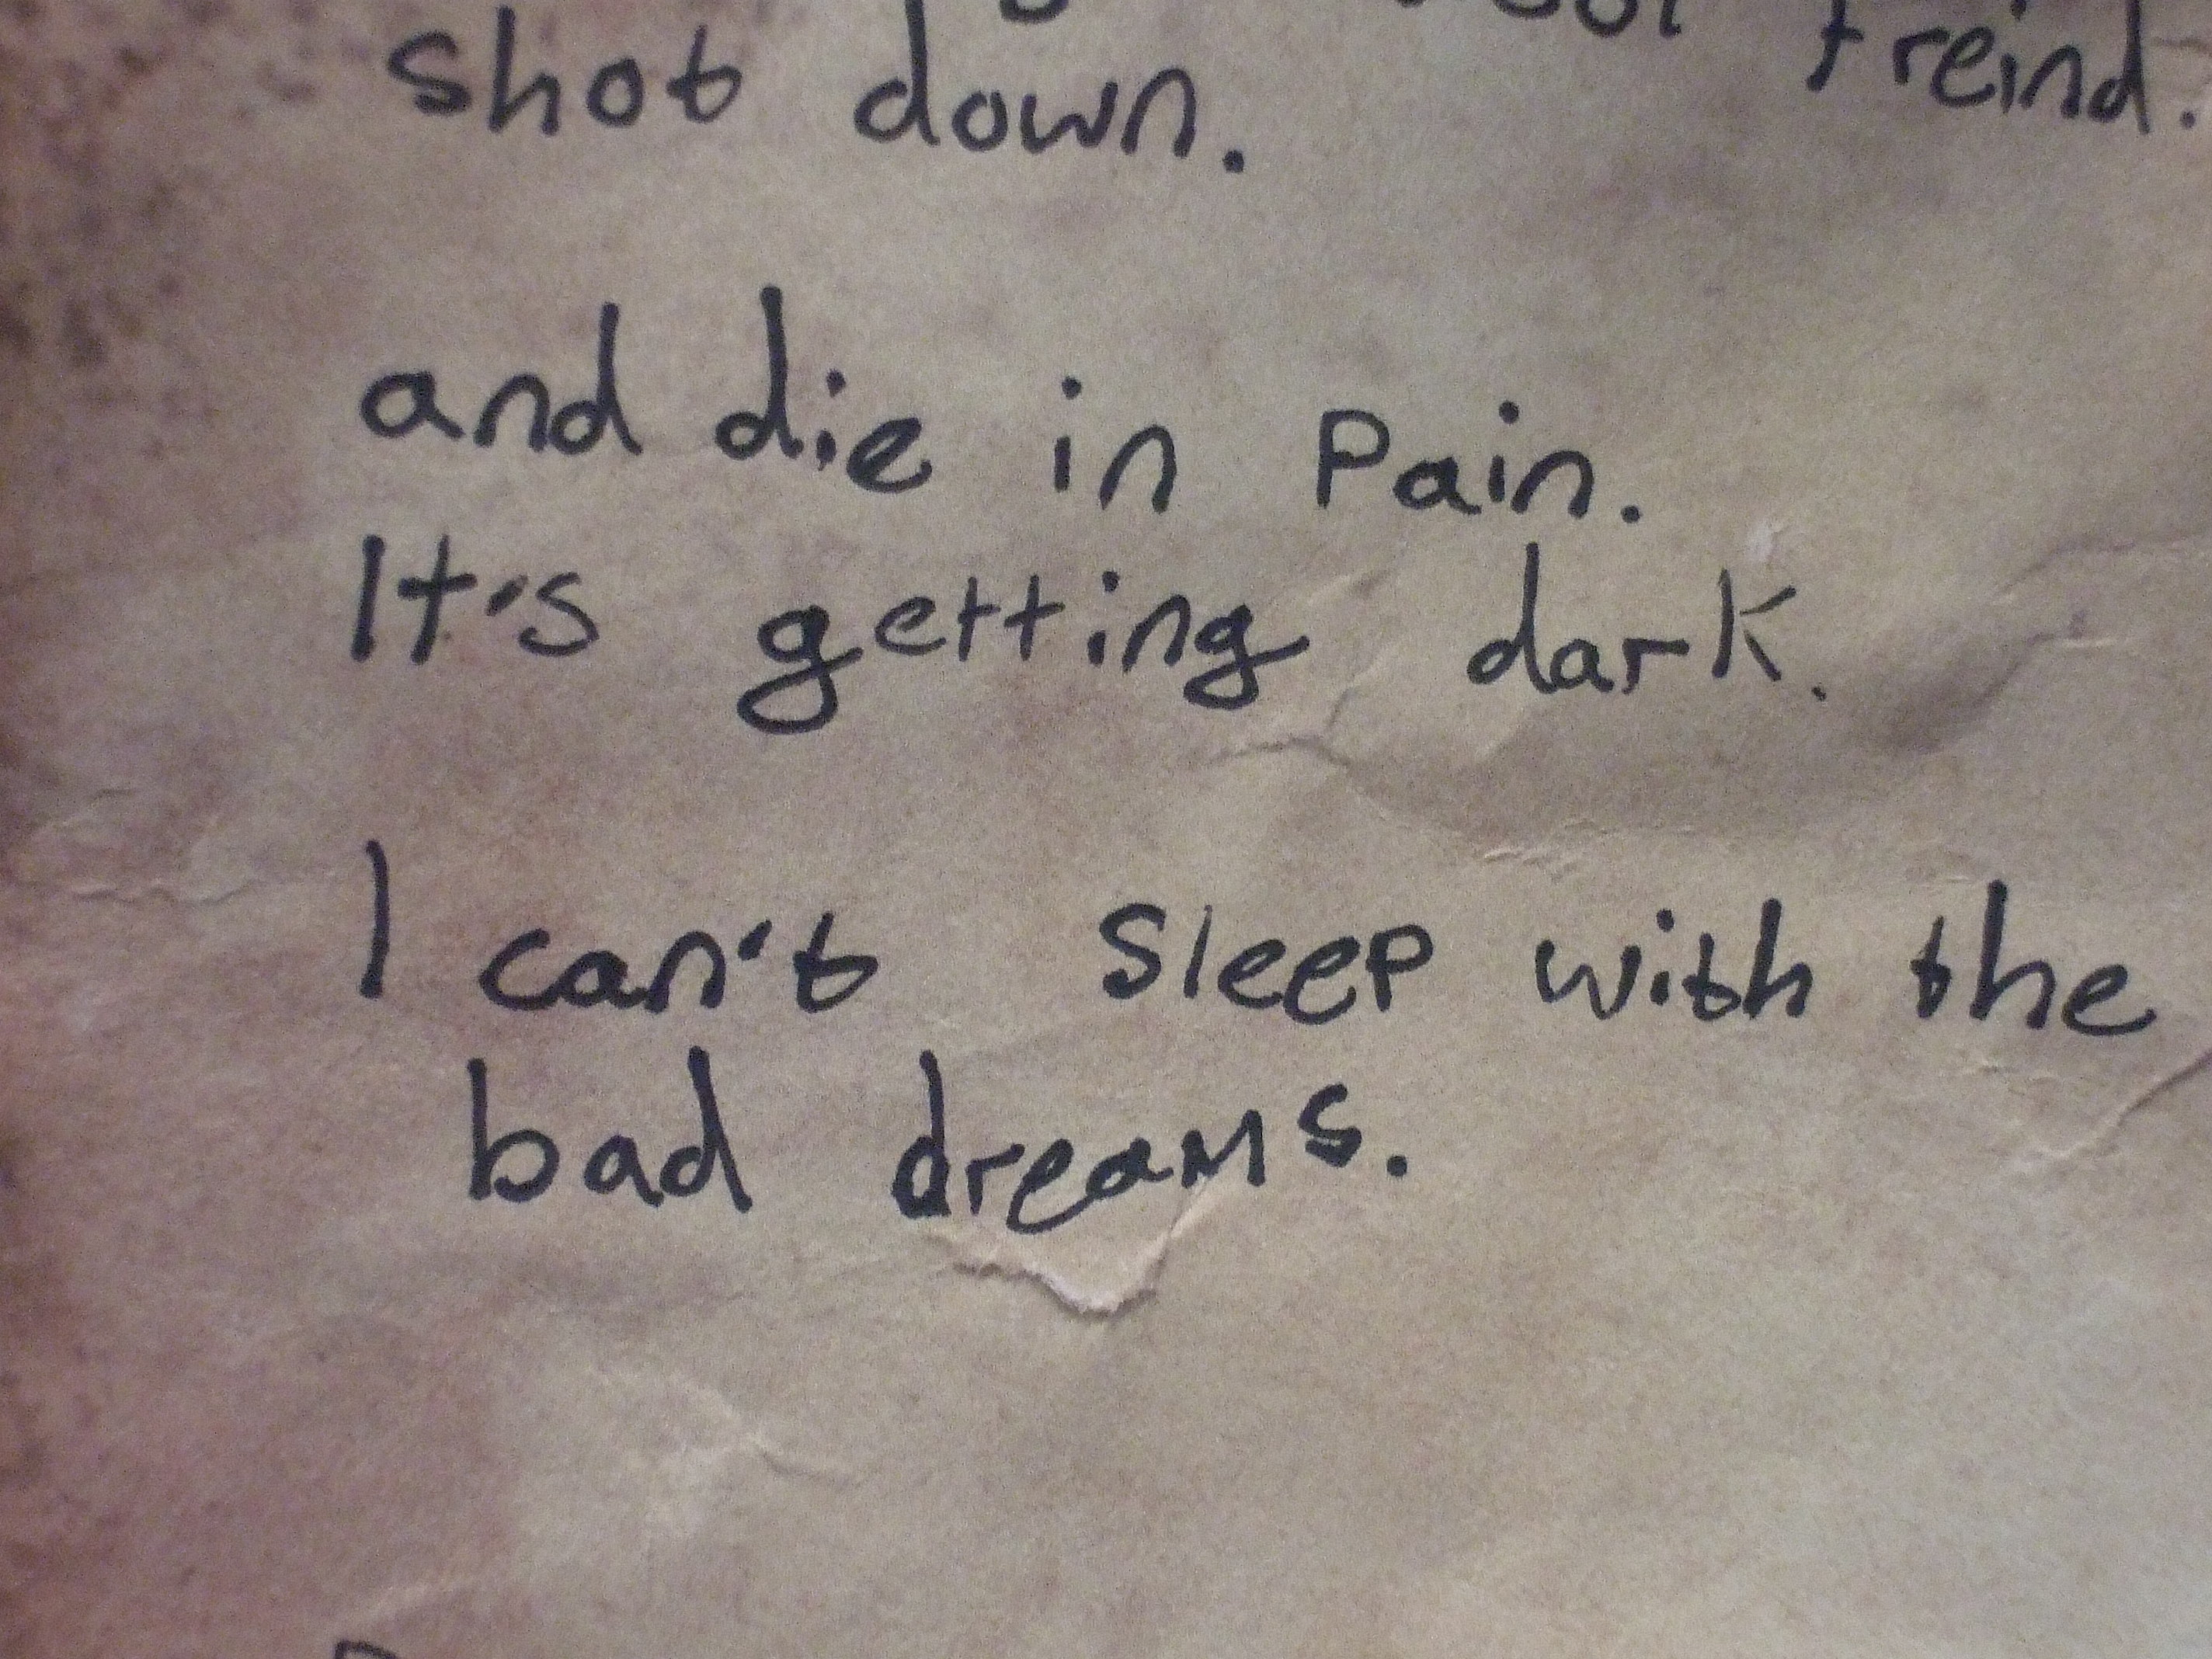 freind.
shot down.
and die in Pain.
It's getting dark.
I can't sleep with the
bad dreams.